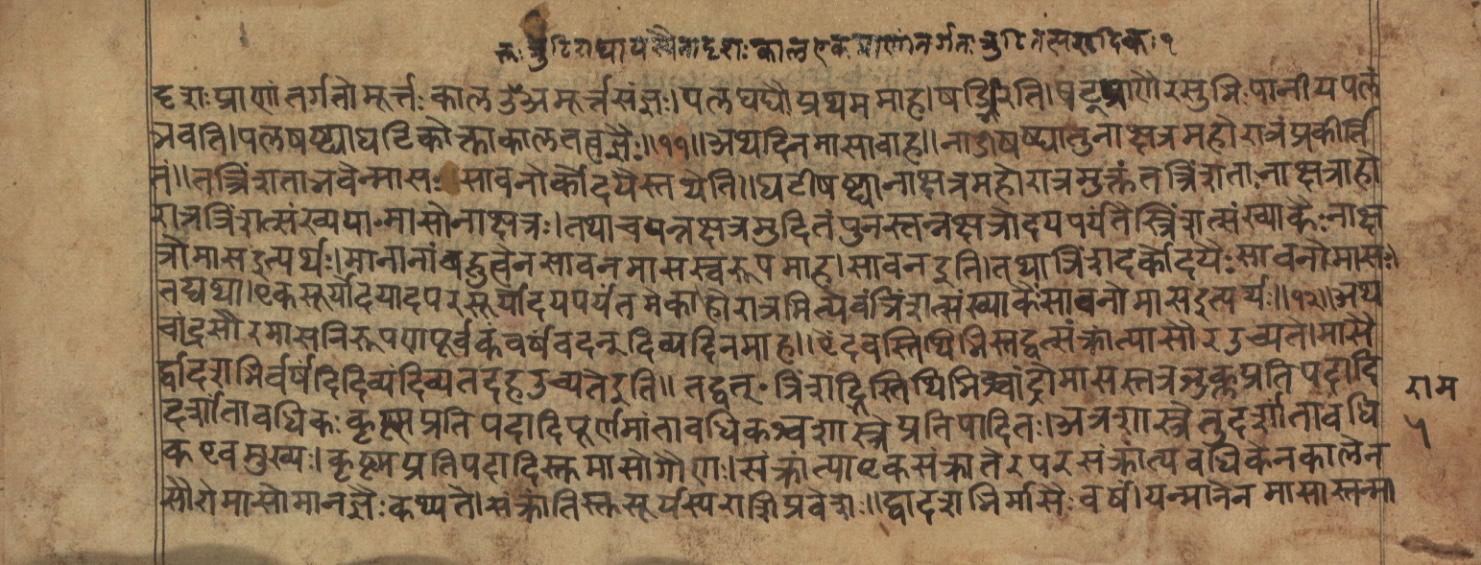 क्तः त्रुटिराद्या यस्यैतादृशः काल एकप्राणांतर्गतः त्रुटितत्परादिकः १
दृशः प्राणांतर्गतो मूर्त्तः काल उअमूर्त्तसंज्ञः। पलघट्यौ प्रथममाह। षड्भिरिति। षट्प्राणैरसुभिः पानीयपलं
भवति। पलषष्ट्या घटिकोक्ता कालतत्वज्ञैः॥११॥ अथ दिनमासावाह॥ नाडीषष्ट्या तु नाक्षत्रमहोरात्रं प्रकीर्ति
तं॥ तत्त्रिंशता भवेन्मासः सावनोर्कोदयैस्तथेति॥ घटीषष्ट्या नाक्षत्रमहोरात्रमुक्तं तत्त्रिंशता नाक्षत्राहो
रात्रत्रिंशत्संख्यया मासो नाक्षत्रः। तथा च यन्नक्षत्रमुदितं पुनस्तन्नक्षत्रोदयपर्यंतैस्त्रिंशत्संख्याकैः नाक्ष
त्रो मास इत्यर्थः। मानानां बहुत्वेन सावनमासस्वरूपमाह। सावन इति। तथा त्रिंशदर्कोदयैः सावनो मासः।
तद्यथा। एकसूर्योदयादपरसूर्योदयपर्यंतमेकाहोरात्रमित्येवं त्रिंशत्संख्याकैः सावनो मास इत्यर्थः॥१२॥ अथ
चांद्रसौरमासनिरूपणपूर्वकं वर्षं वदन् दिव्यदिनमाह॥ ऐंदवस्तिथिभिस्तद्वत्संक्रांत्या सौर उच्यते। मासै
र्द्वादशभिर्वर्षं दिव्यं तदह उच्यत इति॥ तद्वत् त्रिंशद्भिस्तिथिभिश्चांद्रो मासस्तत्र शुक्लप्रतिपदादि
दर्शांतावधिकः कृष्णप्रतिपदादिपूर्णिमांतावधिकश्च शास्त्रे प्रतिपादितः। अत्र शास्त्रे तु दर्शांतावधि
क एव मुख्यः। कृष्णप्रतिपदादिस्तु मासो गौणः। संक्रांत्या एकसंक्रांतेरपरसंक्रांत्यवधिकेन कालेन
सौरो मासो मानज्ञैः कथ्यते। संक्रांतिस्तु सूर्यस्य राशिप्रवेशः॥ द्वादशभिर्मासैः वर्षं। यन्मानेन मासास्तन्मा
राम
५